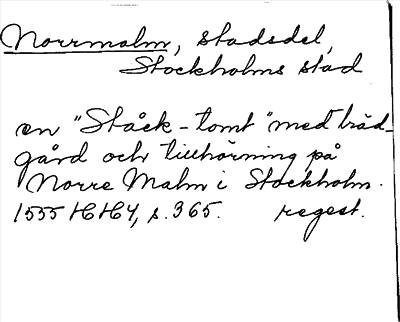 Norrmalm, stadsdel,
Stockholms stad
en "Ståck-tomt" med träd-
gård och tillhörning på
Norre Malm i Stockholm.
1555 HH4, s. 365. regest.